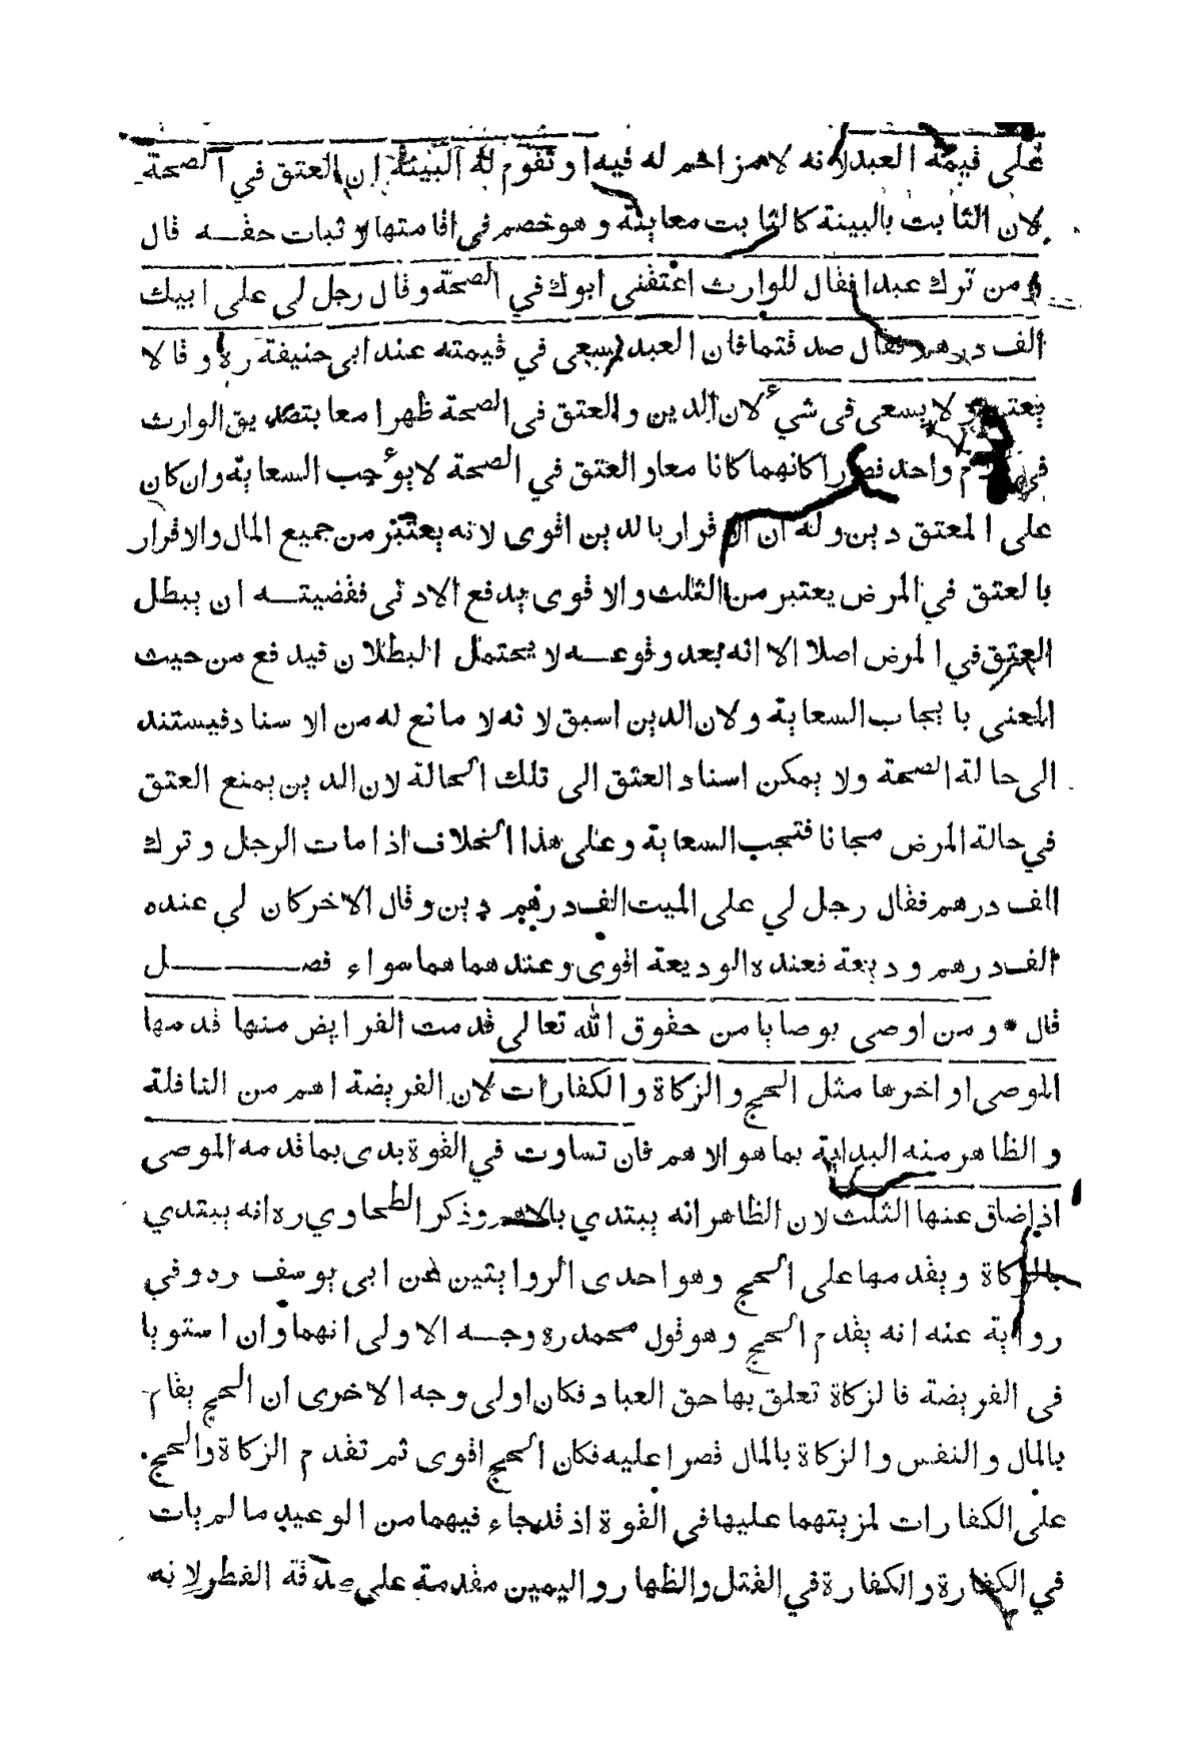 على قيمة العبد لانه لا مزاحم له فيه او تقوم له البينة ان العتق في الصحة
لان الثابت بالبينة كالثابت معاينة و هو خصم في اقامتها لاثبات حقه قال
و من ترك عبدا فقال للوارث اعتقني ابوك في الصحة و قال رجل لي على ابيك
الف درهم فقال صدقتما فان العبد يسعى في قيمته عند ابى حنيفة ره و قالا
يعتق و لا يسعى في شيء لان الدين و العتق في الصحة ظهرا معا بتصديق الوارث
في كلام واحد فصارا كانهما كانا معا و العتق في الصحة لا يوجب السعاية و ان كان
على المعتق دين و له ان الاقرار بالدين اقوى لانه يعتبر من جميع المال و الاقرار
بالعتق في المرض يعتبر من الثلث و الاقوى يدفع الادنى فقضيته ان يبطل
العتق في المرض اصلا الا انه بعد وقوعه لا يحتمل البطلان فيدفع من حيث
المعنى بايجاب السعاية و لان الدين اسبق لانه لا مانع له من الاسناد فيستند
الى حالة الصحة ولا يمكن اسناد العتق الى تلك الحالة لان الدين يمنع العتق
في حالة المرض مجانا فتجب السعاية و على هذا الخلاف اذا مات الرجل و ترك
الف درهم فقال رجل لي على الميت الف درهم دين و قال الاخر كان لي عنده
الف درهم وديعة فعنده الوديعة اقوى و عندهما هما سواء فصــــل
قال * و من اوصى بوصايا من حقوق الله تعالى قدمت الفرايض منها قدمها
الموصى او اخرها مثل الحج و الزكاة و الكفارات لان الفريضة اهم من النافلة
و الظاهر منه البداية بما هو الاهم فان تساوت في القوة بدى بما قدمه الموصى
اذا ضاق عنها الثلث لان الظاهر انه يبتدي بالاهم و ذكر الطحاوي ره انه يبتدي
بالزكاة و يقدمها على الحج و هو احدى الروايتين عن ابى يوسف ره و في
رواية عنه انه يقدم الحج و هو قول محمد ره و جه الاولى انهما و ان استويا
في الفريضة فالزكاة تعلق بها حق العباد فكان اولى وجه الاخرى ان الحج يقام
بالمال و النفس و الزكاة بالمال قصرا عليه فكان الحج اقوى ثم تقدم الزكاة و الحج
على الكفارات لمزيتهما عليها في القوة اذ قد جاء فيهما من الوعيد ما لم يات
في الكفارة و الكفارة في القتل و الظهار و اليمين مقدمة على صدقة الفطر لانه